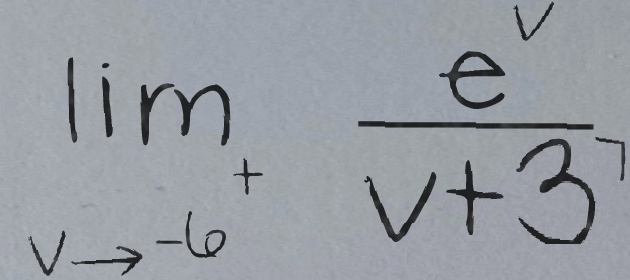 lim v→-6⁺ e^v / (v+3)